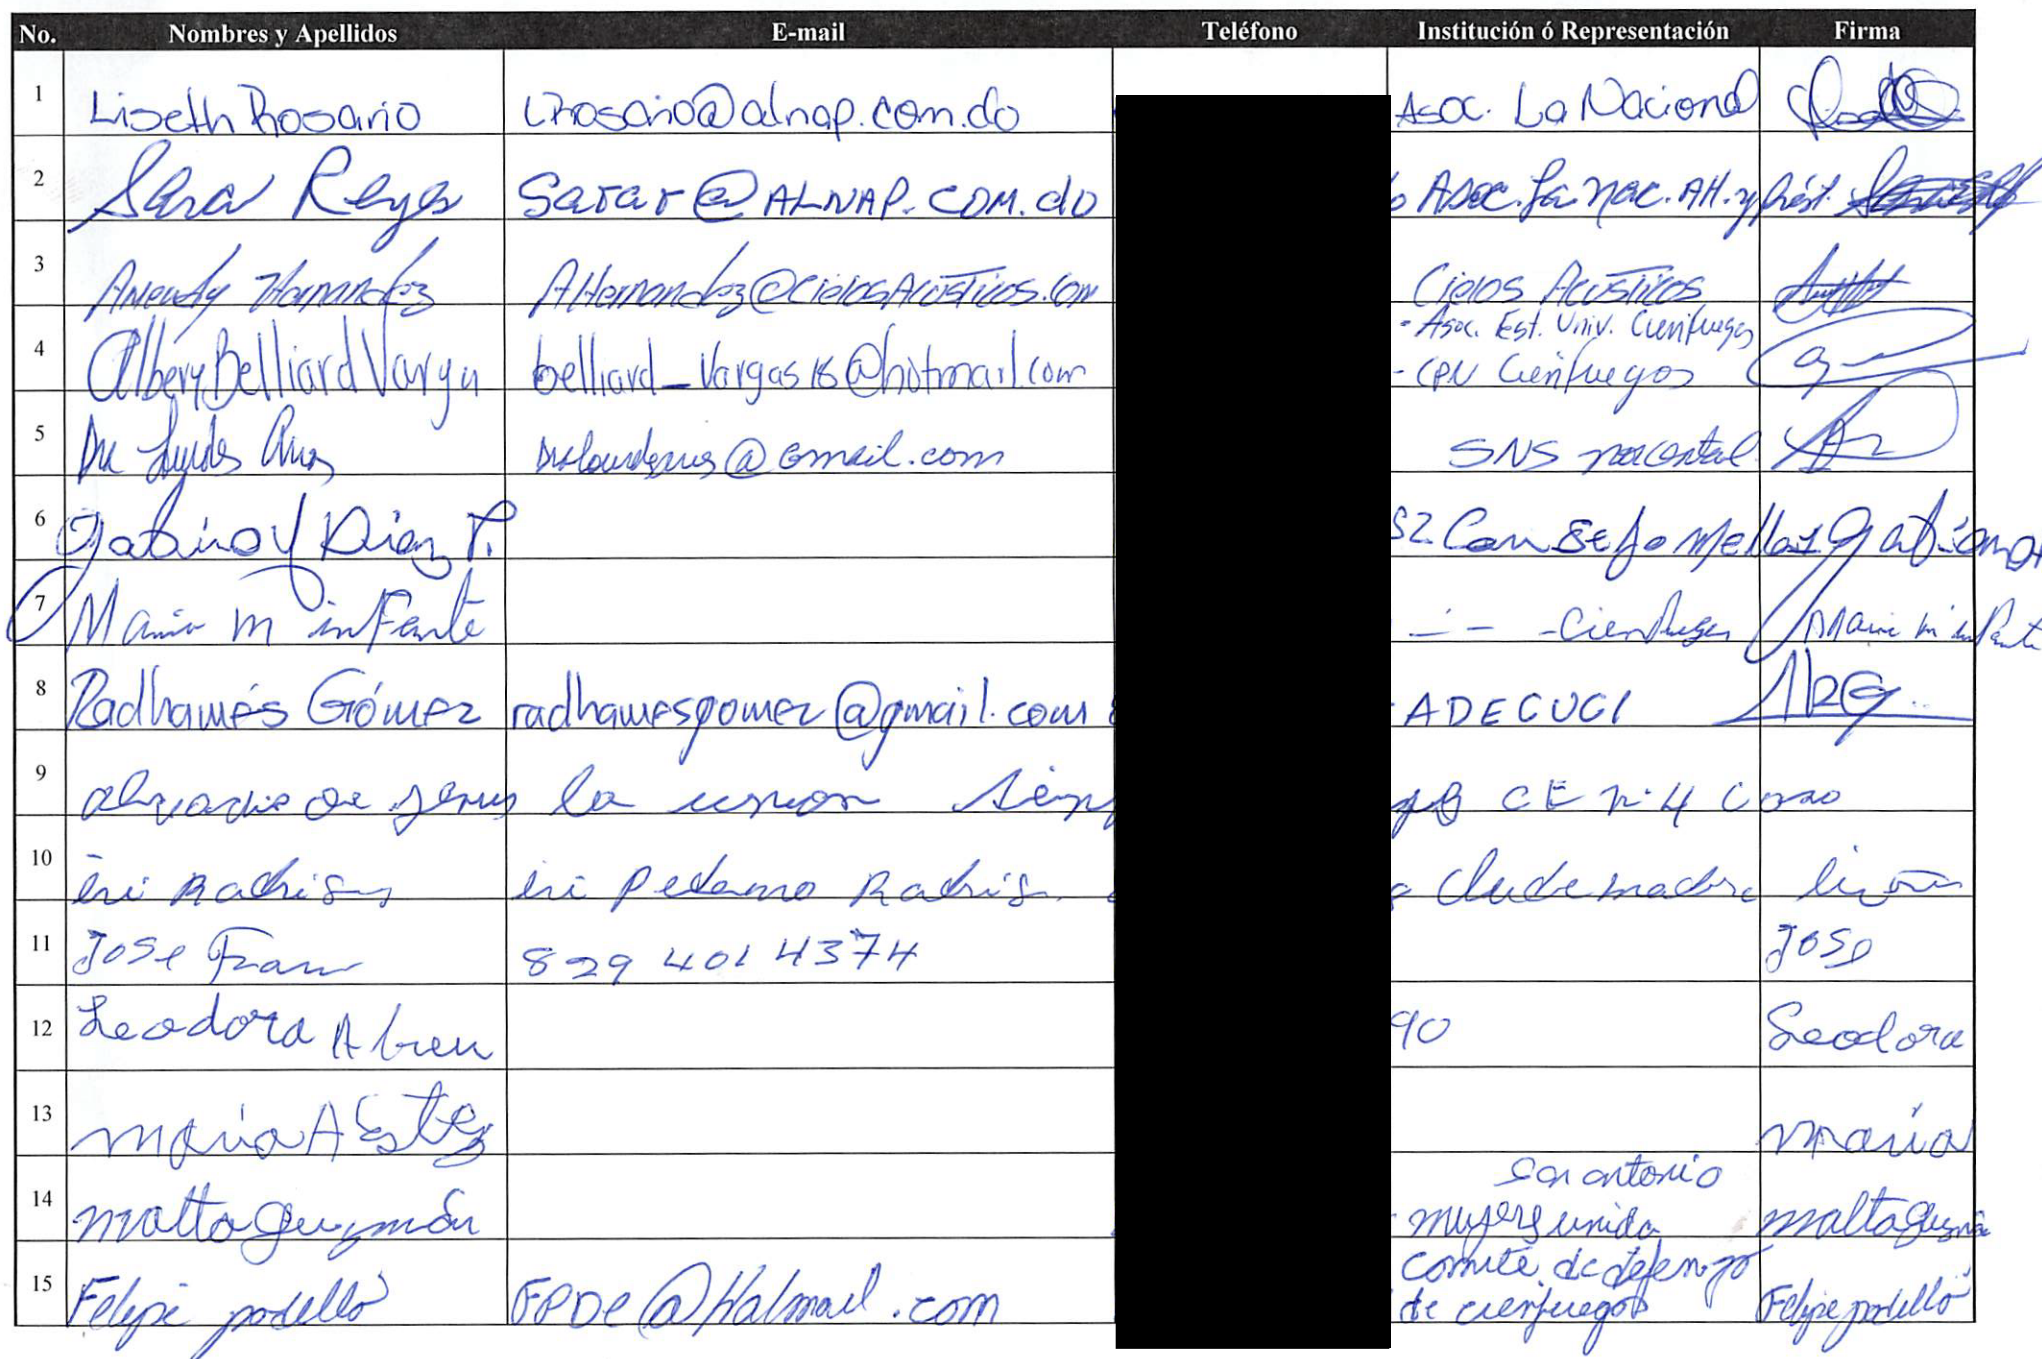 No. Nombres y Apellidos E-mail Teléfono Institución ó Representación Firma
1 Liseth Rosario LRosario@alnap.com.do Asoc. La Nacional
2 Sara Reyes Sarar@ALNAP.COM.do Asoc. La Nac. AH. y Prést.
3 Hernandez AHernandez@CielosAcusticos.com Cielos Acústicos
4 Albery Belliard Vargas belliard_Vargas18@hotmail.com - Asoc. Est. Univ. Cienfuegos
- CPN Cienfuegos
5 @Gmail.com SNS
6 Gabino Y Diaz P.
7 Maria M infante - Cienfuegos Maria M infante
8 Radhamés Gómez radhamesgomez@gmail.com ADECUCI RG
9 de Jesus la union CE n. 4
10 Eri
11 Jose Fran 829 401 4374 Jose
12 Leodora Abreu 90 Leodora
13 maria A Estez maria
14 malta guzmán san antonio
mujers unida malta guzmán
15 Felipe podello FPDC@Halmail.com comite de defenzo
de cienfuegos Felipe podello